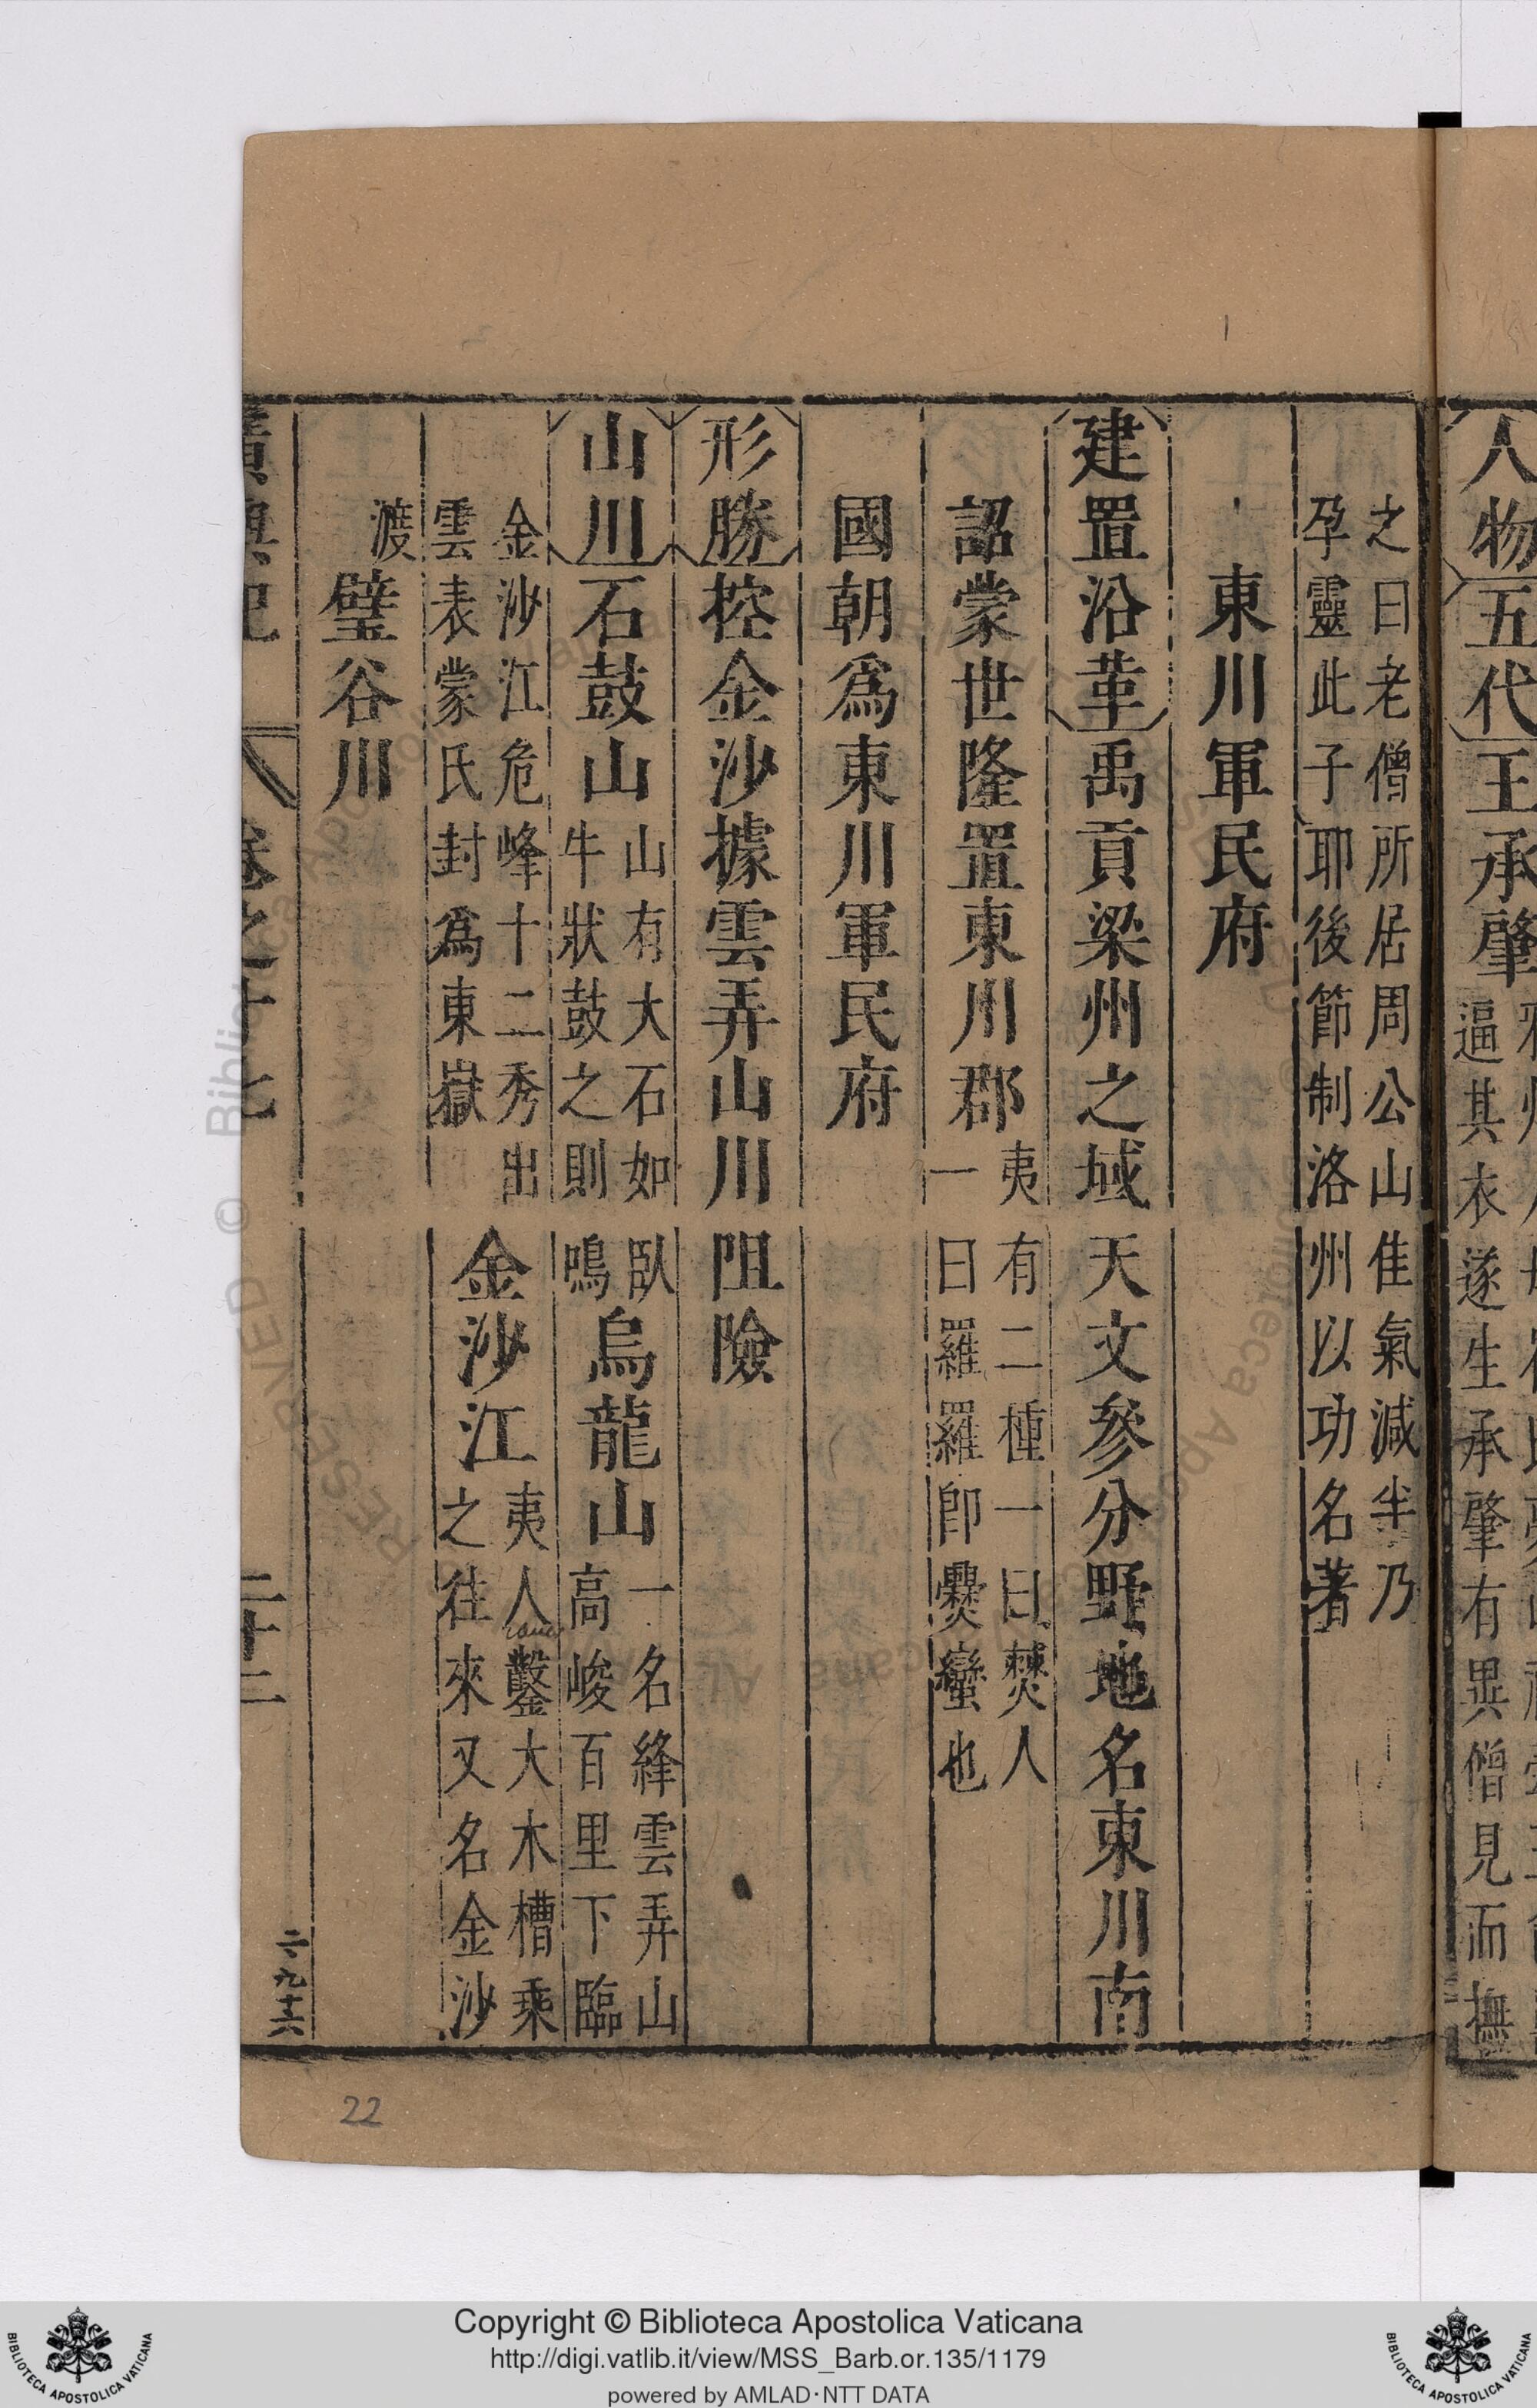 人物五代王承肇
逼其衣遂生承肇有異僧見而撫
之曰老僧所居周公山佳氣減半乃
孕靈此子耶後節制洛州以功名著
東川軍民府
建置沿革禹貢梁州之域天文參分野地名東川南
詔蒙世隆置東川郡夷有二種一曰僰人
一曰羅羅卽爨蠻也
國朝爲東川軍民府
形勝控金沙據雲弄山川阻險
山川石鼓山山有大石如臥
牛狀鼓之則鳴
烏龍山一名絳雲弄山
高峻百里下臨
金沙江危峰十二秀出
雲表蒙氏封爲東嶽
金沙江夷人鑿大木槽乘
之往來又名金沙
渡
璧谷川
廣輿記
卷之十七
二十二
二九十六
22
Copyright © Biblioteca Apostolica Vaticana
http://digi.vatlib.it/view/MSS_Barb.or.135/1179
powered by AMLAD·NTT DATA
BIBLIOTECA APOSTOLICA VATICANA
BIBLIOTECA APOSTOLICA VATICANA